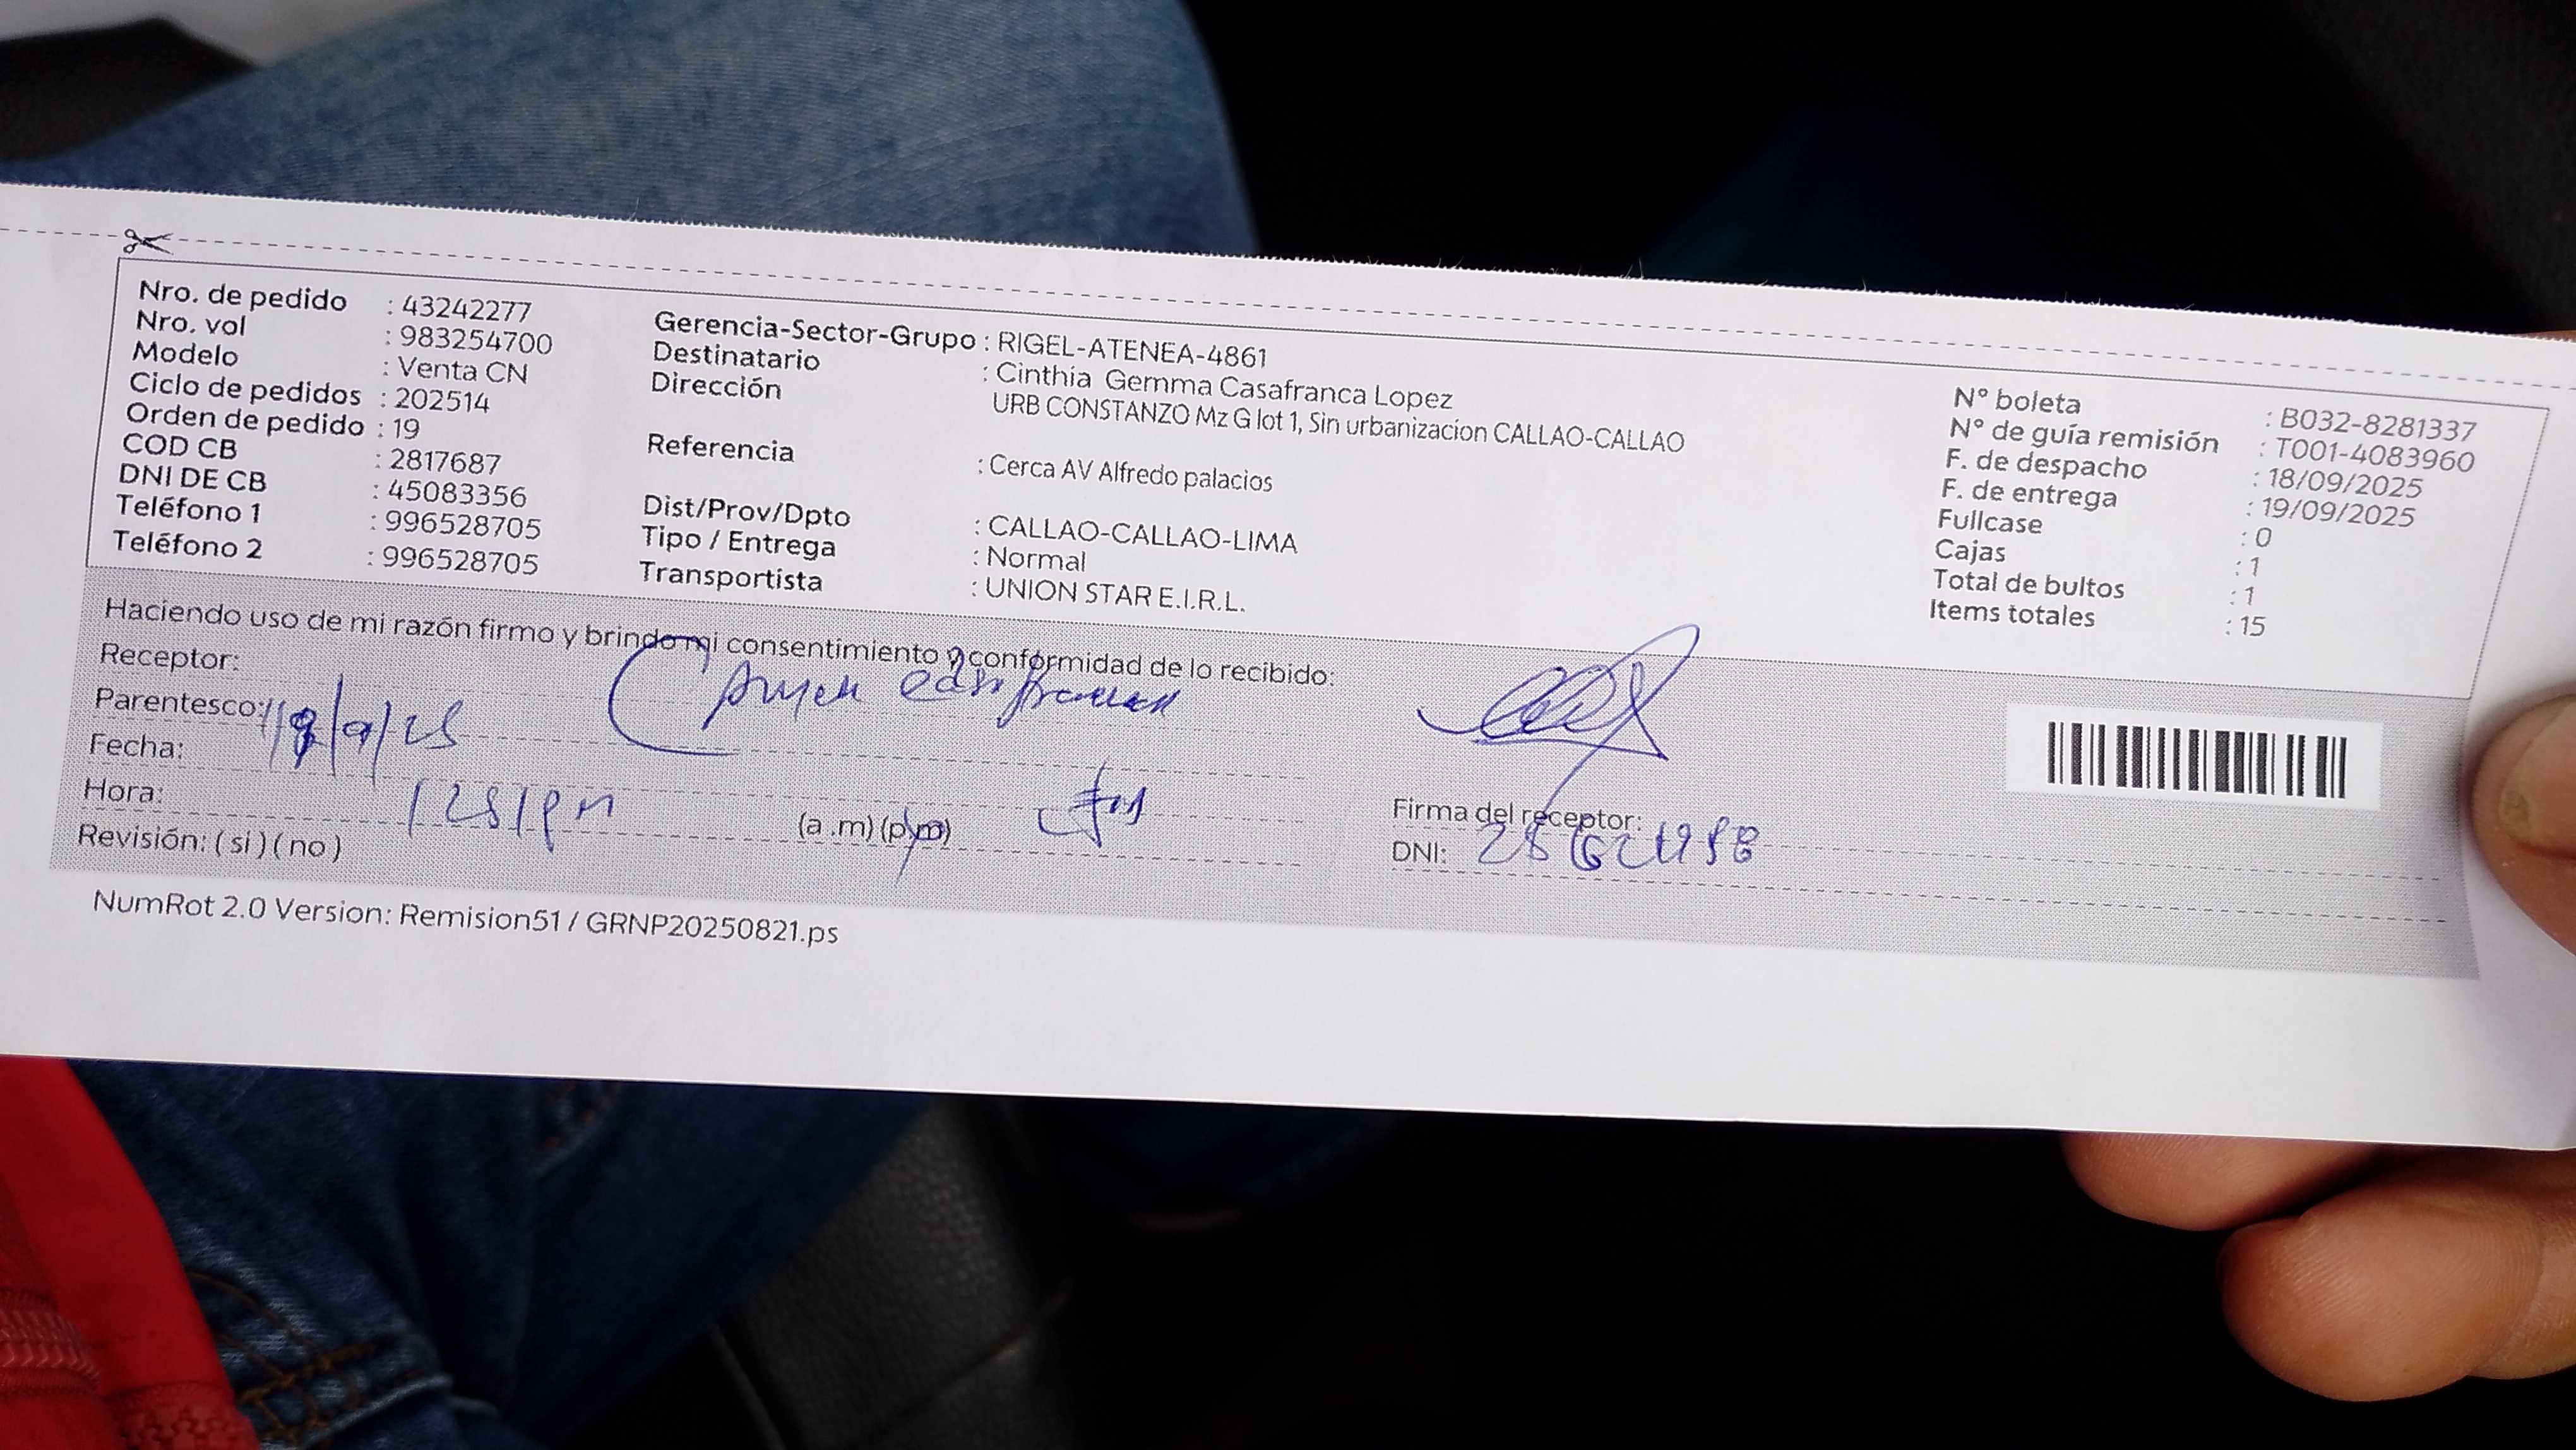 Nro. de pedido : 43242277
Nro. vol : 983254700
Modelo : Venta CN
Ciclo de pedidos : 202514
Orden de pedido : 19
COD CB : 2817687
DNI DE CB : 45083356
Teléfono 1 : 996528705
Teléfono 2 : 996528705
Gerencia-Sector-Grupo : RIGEL-ATENEA-4861
Destinatario : Cinthia Gemma Casafranca Lopez
Dirección URB CONSTANZO Mz G lot 1, Sin urbanizacion CALLAO-CALLAO
Referencia : Cerca AV Alfredo palacios
Dist/Prov/Dpto : CALLAO-CALLAO-LIMA
Tipo / Entrega : Normal
Transportista : UNION STAR E.I.R.L.
N° boleta : B032-8281337
N° de guía remisión : T001-4083960
F. de despacho : 18/09/2025
F. de entrega : 19/09/2025
Fullcase : 0
Cajas : 1
Total de bultos : 1
Items totales : 15
Haciendo uso de mi razón firmo y brindo mi consentimiento y conformidad de lo recibido:
Receptor:
Parentesco:
Fecha:
Hora: (a .m) (p.m)
Revisión: ( si ) ( no )
Firma del receptor:
DNI:
NumRot 2.0 Version: Remision51 / GRNP20250821.ps